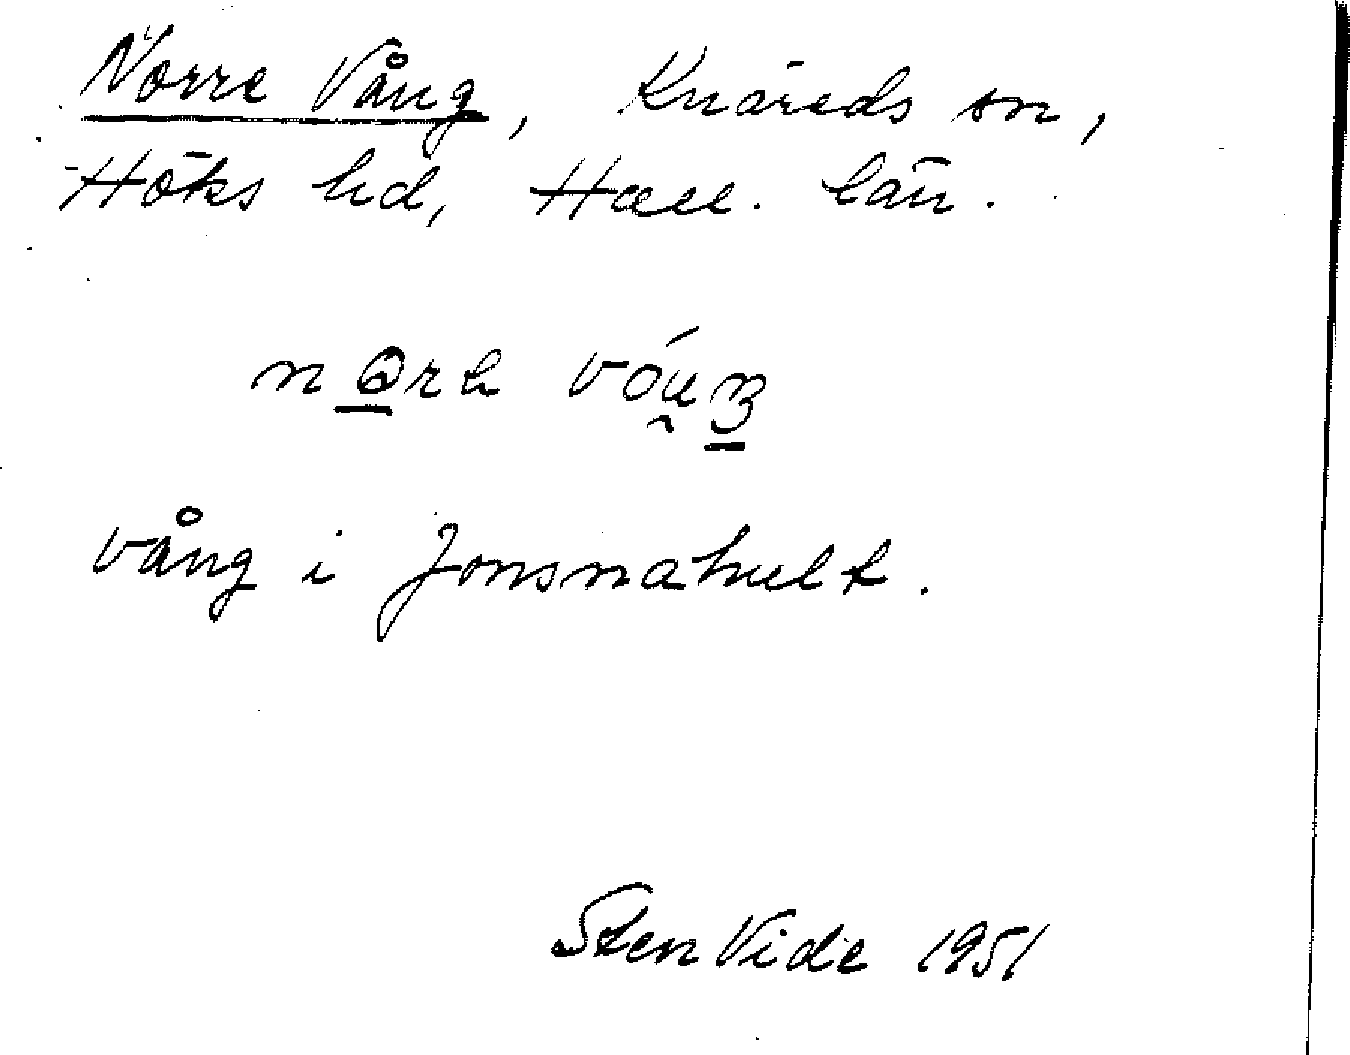 Norre Vång, Knäreds sn,
Höks hd, Hall. län.
vång i Jonsnahult.
Sten Vide 1951